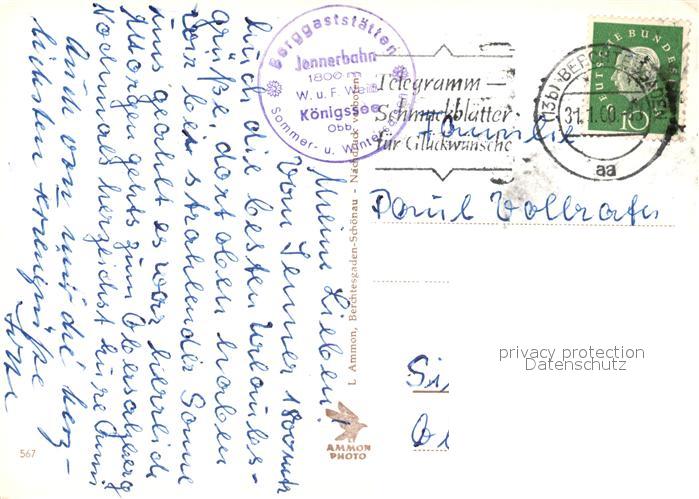 Berggaststätten
Jennerbahn
1800 m
W. u. F. Weiß
Königssee
Obb.
Sommer- u. Winter
Telegramm –
Schmuckblätter
für Glückwünsche
DEUTSCHE BUNDESPOST
10
(13b) BERCHTESGADEN
31.1.60.
aa
Familie
Paul Vollrath
Si
be
privacy protection
Datenschutz
Meine Lieben!
Vom Jenner 1800 mtr
Euch die besten Urlaubs-
grüße, dort oben haben
wir bei strahlender Sonne
uns geaalt es war herrlich
Morgen gehts zum Obersalzberg
Nochmals herzlichst Eure
Auch von mir die herz-
lichsten
L. Ammon, Berchtesgaden-Schönau - Nachdruck verboten
AMMON
PHOTO
567